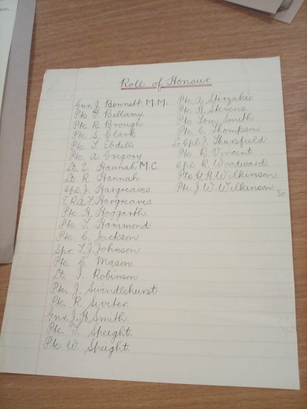 Role of Honour
Gnr. J. Bennett, M.M.
Pte. Bellamy
Pte. R. Brough
Pte. S. Clark
Pte. T. Ebdell
Pte. A. Gregory
Lt. E. Hannah M.C.
Lt. R. Hannah
Cpl. J. Hargreaves
Hargreaves
Pte. G. Hoggarth
Pte. T. Hammond
Pte. C. Jackson
Spr. T. J. Johnson
Pte. Mason
Lt. J. Robinson
Pte. J. Swindlehurst
Pte. R. Syvter
Gnr. J. H. Smith
Pte. T. Speight
Pte. W. Speight
Pte. A. Stirzaker
Pte. H. Stevens
Pte. Tom Smith
Pte. C. Thompson
L. Cpl. J. Tharsfield
Pte. R. Vincent
Cpl. R. Woodward
Pte. R. H. Wilkinson
Pte. J. W. Wilkinson